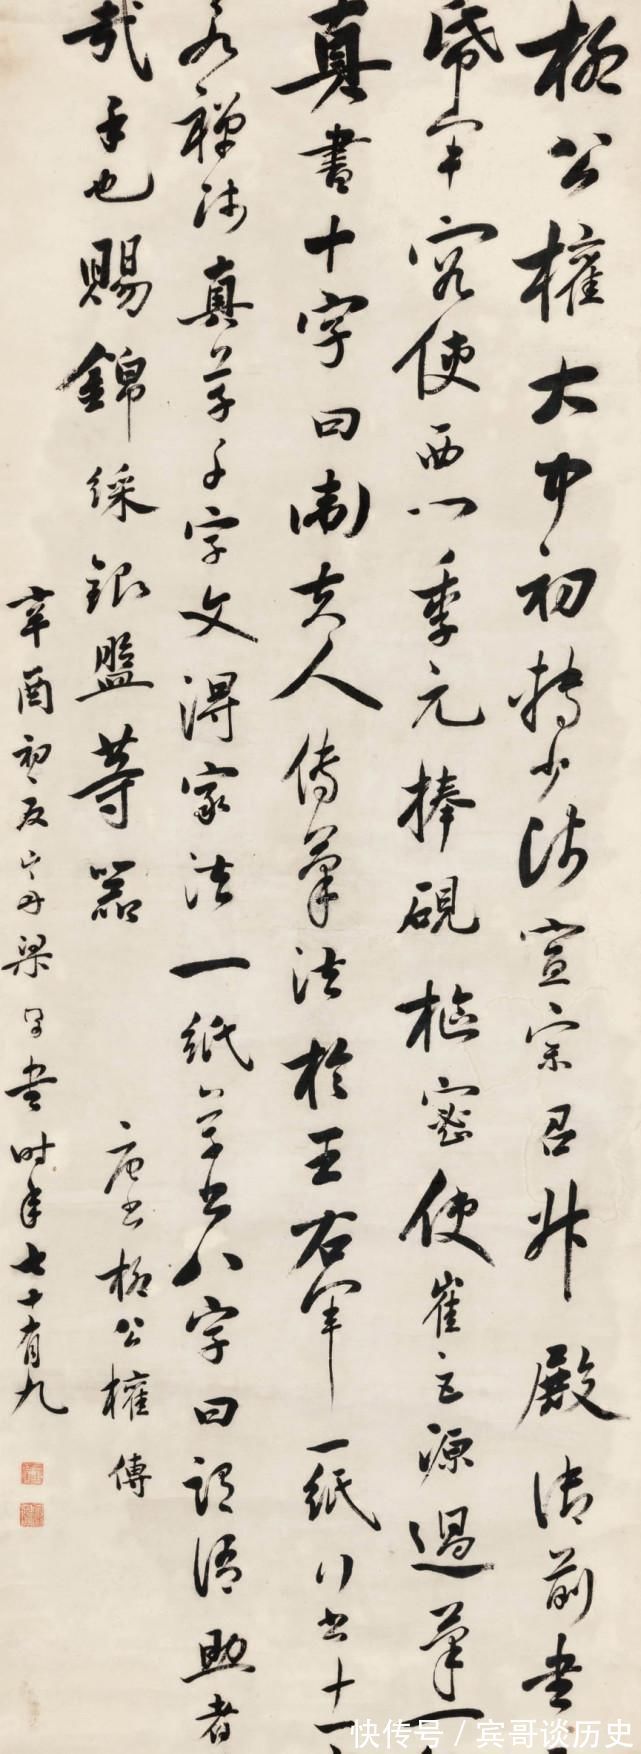 柳公權大中初轉少師宣宗召升殿御前書
帋軍容使西門季元捧硯樞密使崔巨源過筆一
真書十字曰衛夫人傳筆法於王右軍一紙行書十一
永禪師真草千字文得家法一紙草書八字曰謂語助者
哉乎也賜錦綵銀盤等器
唐書柳公權傳
辛酉初夏山舟梁同書時年七十有九
快传号 / 宾哥谈历史